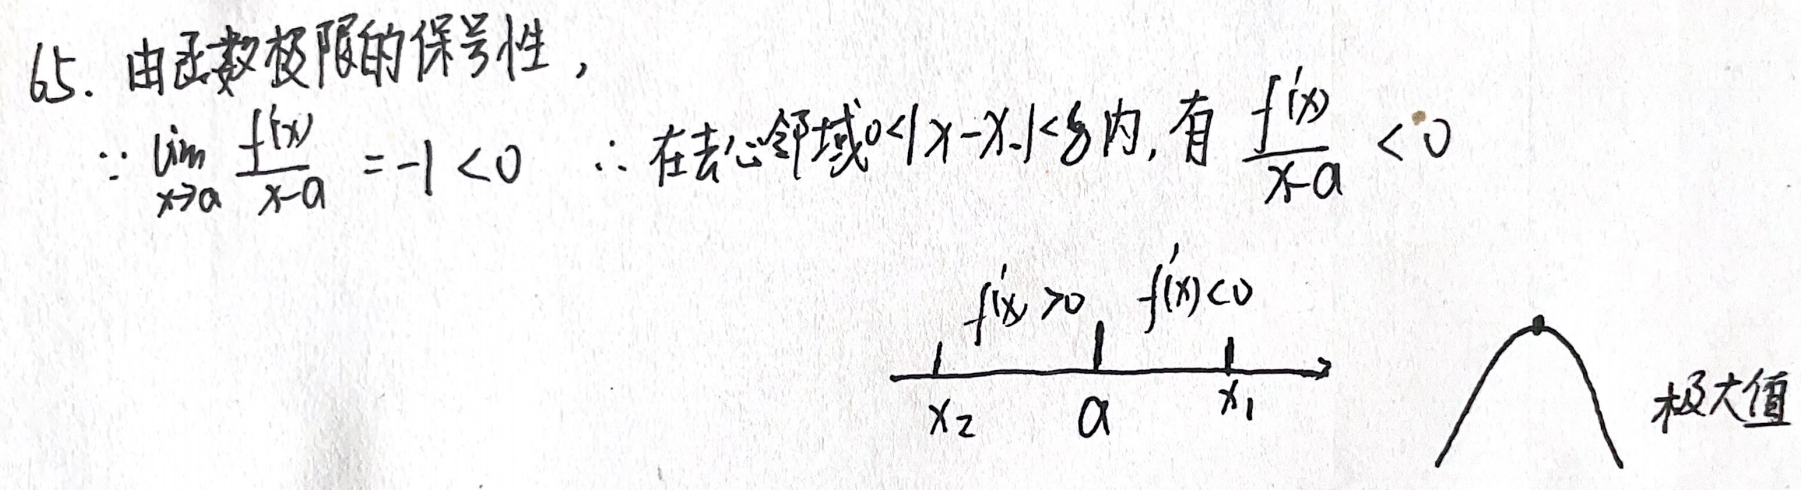 65. 由函数极限的保号性，
∵ lim x→a f'(x)/(x-a) = -1 < 0 ∴ 在去心邻域0<|x-x.|<δ内, 有 f'(x)/(x-a) < 0
f'(x) >0 f'(x)<0
x₂ a x₁
极大值